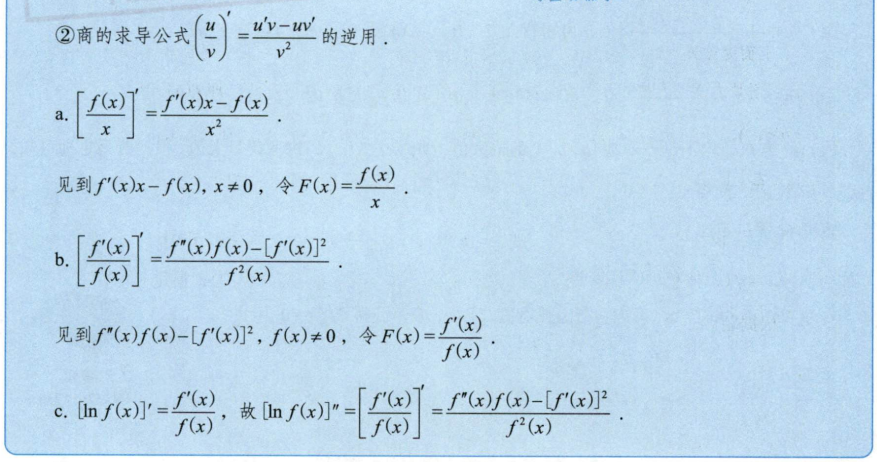 ②商的求导公式(u/v)′=(u′v−uv′)/v²的逆用.
a. [f(x)/x]′=(f′(x)x−f(x))/x².
见到f′(x)x−f(x), x≠0, 令F(x)=f(x)/x.
b. [f′(x)/f(x)]′=(f″(x)f(x)−[f′(x)]²)/f²(x).
见到f″(x)f(x)−[f′(x)]², f(x)≠0, 令F(x)=f′(x)/f(x).
c. [ln f(x)]′=f′(x)/f(x), 故[ln f(x)]″=[f′(x)/f(x)]′=(f″(x)f(x)−[f′(x)]²)/f²(x).